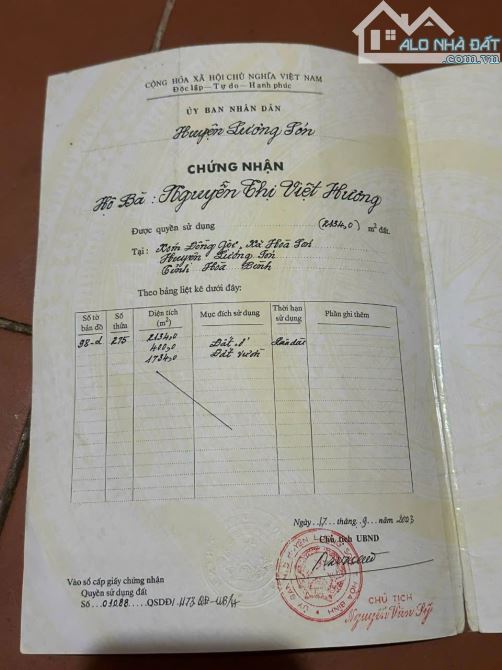 ALO NHÀ ĐẤT
.com.vn
CỘNG HÒA XÃ HỘI CHỦ NGHĨA VIỆT NAM
Độc lập - Tự do - Hạnh phúc
ỦY BAN NHÂN DÂN
Huyện Lương Sơn
CHỨNG NHẬN
Hộ Bà : Nguyễn Thị Việt Hương
Được quyền sử dụng (2134,0) m² đất.
Tại : Xóm Đồng Gốc, Xã Hoà Sơn
Huyện Lương Sơn
Tỉnh Hoà Bình
Theo bảng liệt kê dưới đây:
Số tờ bản đồ Số thửa Diện tích (m²) Mục đích sử dụng Thời hạn sử dụng Phần ghi thêm
98-d 275 2134,0
400,0 Đất ở Lâu dài
1734,0 Đất vườn
Ngày 17 tháng 9 năm 2003
Chủ tịch UBND
Vào sổ cấp giấy chứng nhận
Quyền sử dụng đất
Số 01088 QSDĐ/ 1173 QĐ-UB/H
CHỦ TỊCH
Nguyễn Văn Sỹ